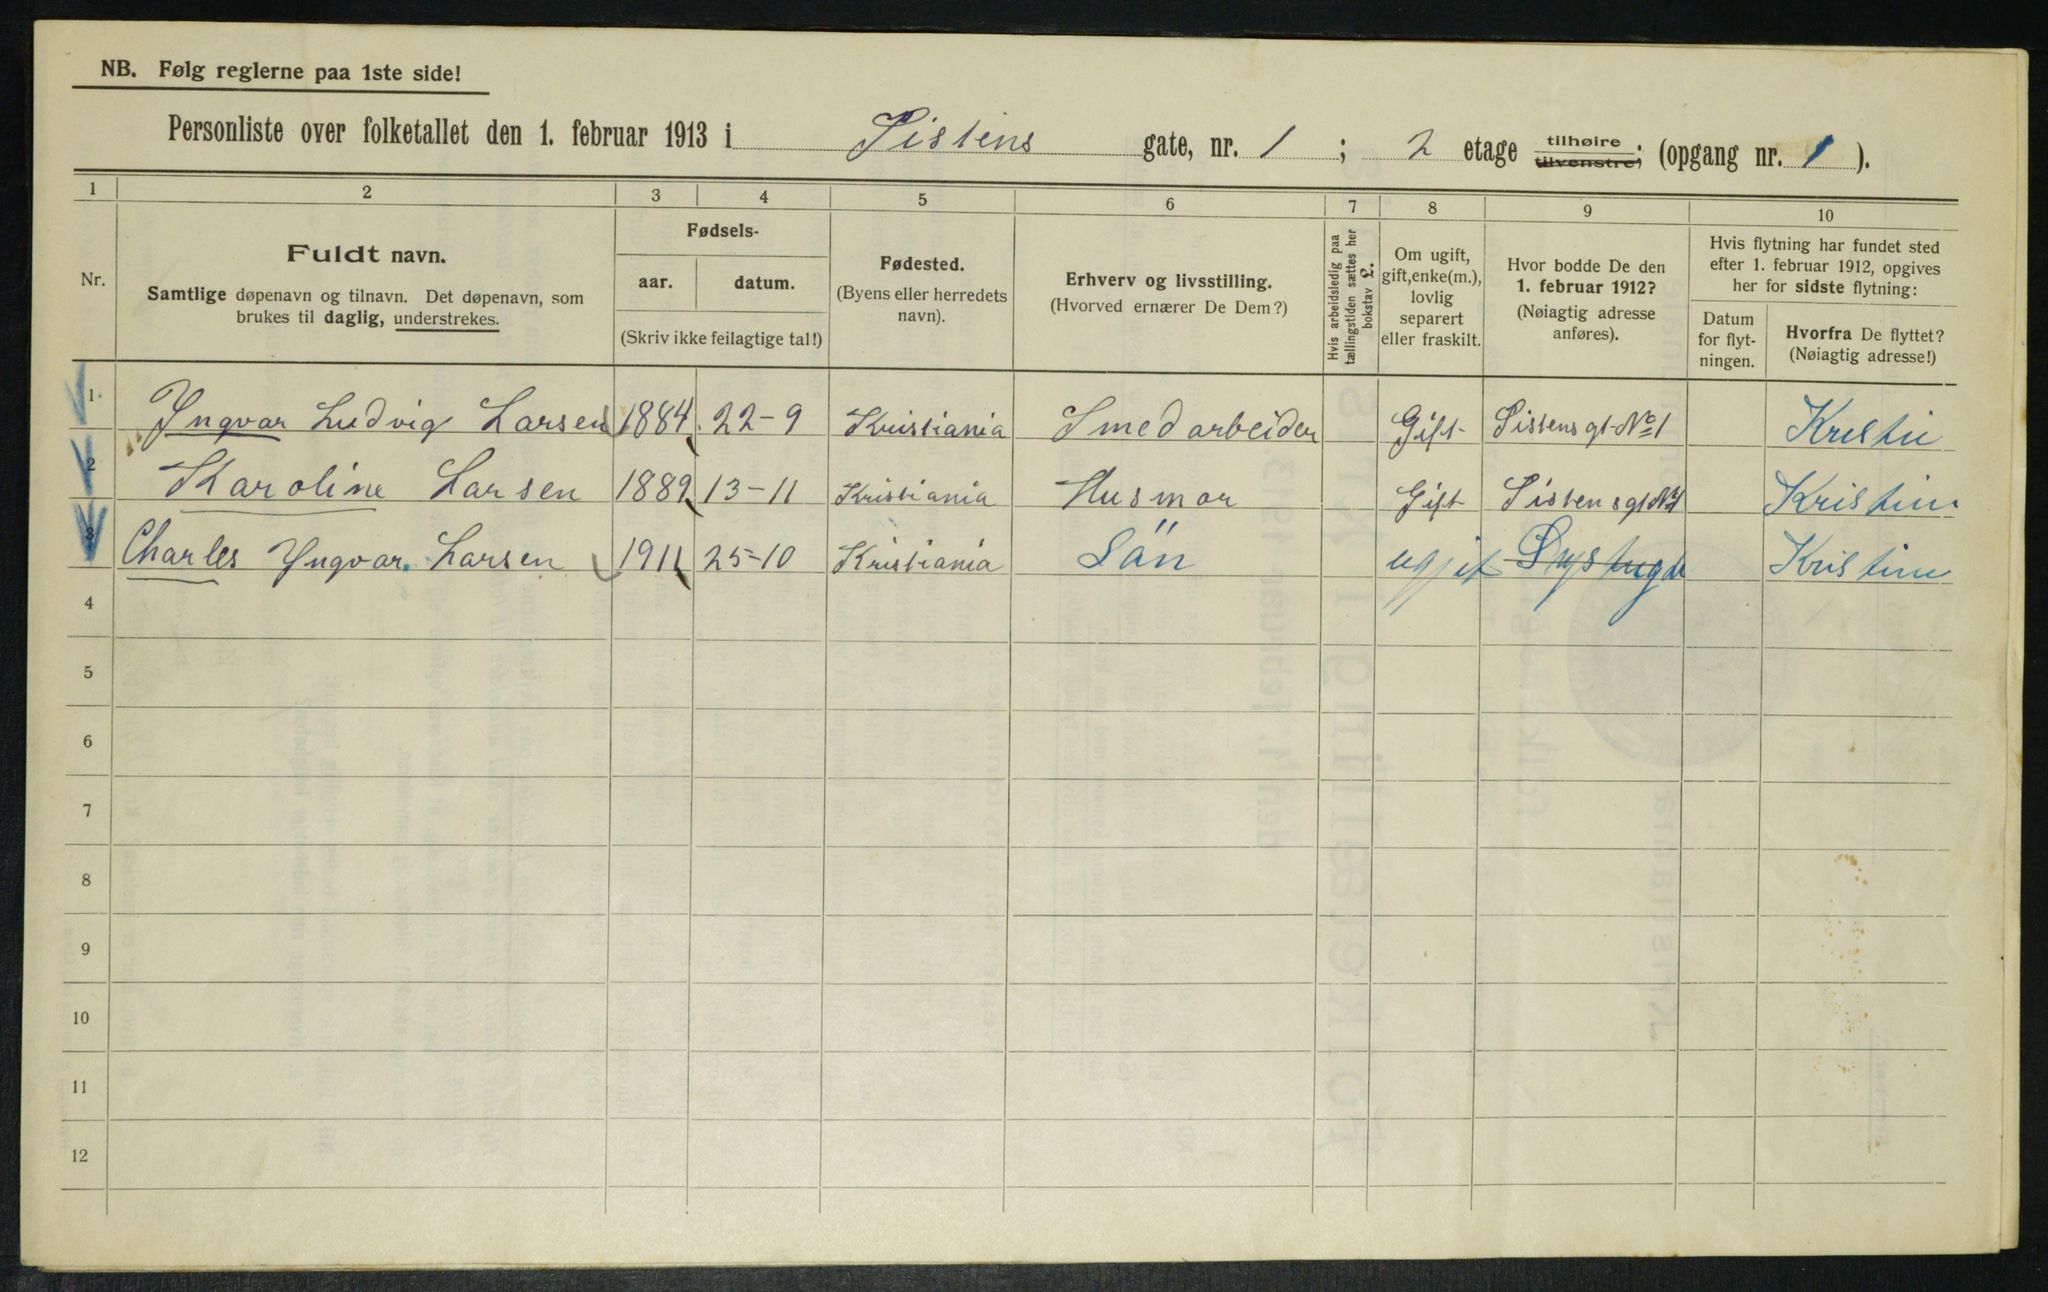 NB. Følg reglerne paa 1ste side!
Personliste over folketallet den 1. februar 1913 i Sistens gate, nr. 1 ; 2 etage tilhøire tilvenstre; (opgang nr. 1 ).
1 2 3 4 5 6 7 8 9 10
Nr.
Fuldt navn.
Samtlige døpenavn og tilnavn. Det døpenavn, som
brukes til daglig, understrekes.
Fødsels-
aar. datum.
(Skriv ikke feilagtige tal!)
Fødested.
(Byens eller herredets
navn).
Erhverv og livsstilling.
(Hvorved ernærer De Dem?)
Hvis arbeidsledig paa
tællingstiden sættes her
bokstav £.
Om ugift,
gift, enke(m.),
lovlig
separert
eller fraskilt.
Hvor bodde De den
1. februar 1912?
(Nøiagtig adresse
anføres).
Hvis flytning har fundet sted
efter 1. februar 1912, opgives
her for sidste flytning:
Datum
for flyt-
ningen.
Hvorfra De flyttet?
(Nøiagtig adresse!)
1. Yngvar Ludvig Larsen 1884 22-9 Kristiania Smedarbeider Gift Sistensgt No 1
2 Karoline Larsen 1889 13-11 Kristiania Husmor Gift Sistensgt No 1
3 Charles Yngvar Larsen 1911 25-10 Kristiania Sän ugift
4
5
6
7
8
9
10
11
12